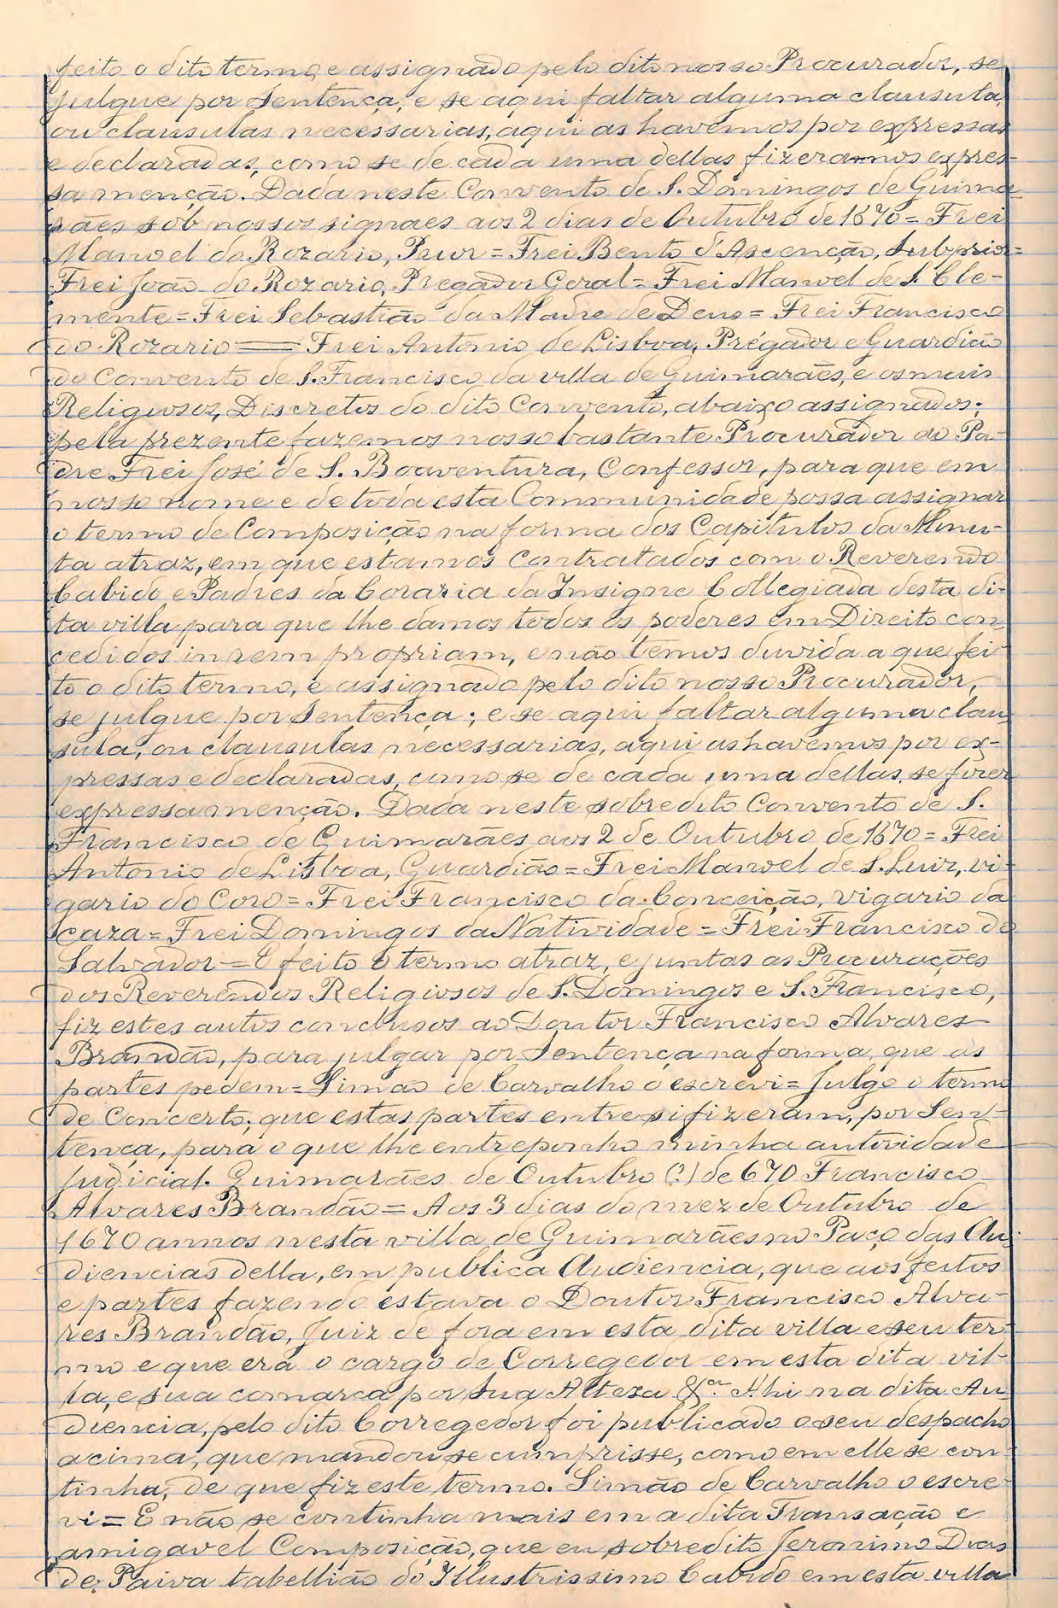 feito o dito termo, e assignado pelo dito nosso Procurador, se
julgue por Sentença, e se aqui faltar alguma clausula,
ou clausulas necessarias, aqui as havemos por expressas
e declaradas, como se de cada uma dellas fizeramos expres-
sa menção. Dada neste Convento de S. Domingos de Guima-
rães sob nossos signaes aos 2 dias de Outubro de 1670 = Frei
Manoel do Rozario, Prior = Frei Bento d'Ascenção, Subprior =
Frei João do Rozario, Pregador Geral = Frei Manoel de S. Cle-
mente = Frei Sebastião da Madre de Deus = Frei Francisco
do Rozario == Frei Antonio de Lisboa, Prégador e Guardião
do Convento de S. Francisco da villa de Guimarães, e os mais
Religiosos, Discretos do dito Convento, abaixo assignados;
pela prezente fazemos nosso bastante Procurador ao Pa-
dre Frei José de S. Boaventura, Confessor, para que em
nosso nome e de toda esta Communidade possa assignar
o termo de Composição na forma dos Capitulos da Minu-
ta atraz, em que estamos contratados com o Reverendo
Cabido e Padres da Coraria da Insigne Collegiada desta di-
ta villa para que lhe damos todos os poderes em Direito con-
cedidos in rem propriam, e não temos duvida a que fei-
to o dito termo, e assignado pelo dito nosso Procurador,
se julgue por Sentença; e se aqui faltar alguma clau-
sula, ou clausulas necessarias, aqui as havemos por ex-
pressas e declaradas, como se de cada uma dellas se fizer
expressa menção. Dada neste sobredito Convento de S.
Francisco de Guimarães aos 2 de Outubro de 1670 = Frei
Antonio de Lisboa, Guardião = Frei Manoel de S. Luiz, vi-
gario do Coro = Frei Francisco da Conceição, vigario da
caza = Frei Domingos da Natividade = Frei Francisco do
Salvador = E feito o termo atraz, e juntas as Procurações
dos Reverendos Religiosos de S. Domingos e S. Francisco,
fiz estes autos conclusos ao Doutor Francisco Alvares
Brandão, para julgar por Sentença na forma, que as
partes pedem = Simão de Carvalho o escrevi = Julgo o termo
de Concerto, que estas partes entre si fizeram, por Sen-
tença, para o que lhe entreponho minha autoridade
Judicial. Guimarães de Outubro (?) de 670 Francisco
Alvares Brandão = Aos 3 dias do mez de Outubro de
1670 annos nesta villa de Guimarães no Paço das Au-
diencias della, em publica Audiencia, que aos feitos
e partes fazendo estava o Doutor Francisco Alva-
res Brandão, Juiz de fora em esta dita villa e seu ter-
mo e que era o cargo de Corregedor em esta dita vil-
la, e sua comarca por Sua Alteza &.ª Ahi na dita Au-
diencia, pelo dito Corregedor foi publicado o seu despacho
acima, que mandou se cumprisse, como em elle se con-
tinha, de que fiz este termo. Simão de Carvalho o escre-
vi = E não se continha mais em a dita Transação e
amigavel Composição, que eu sobredito Jeronimo Dias
de Paiva tabellião do Illustrissimo Cabido em esta villa